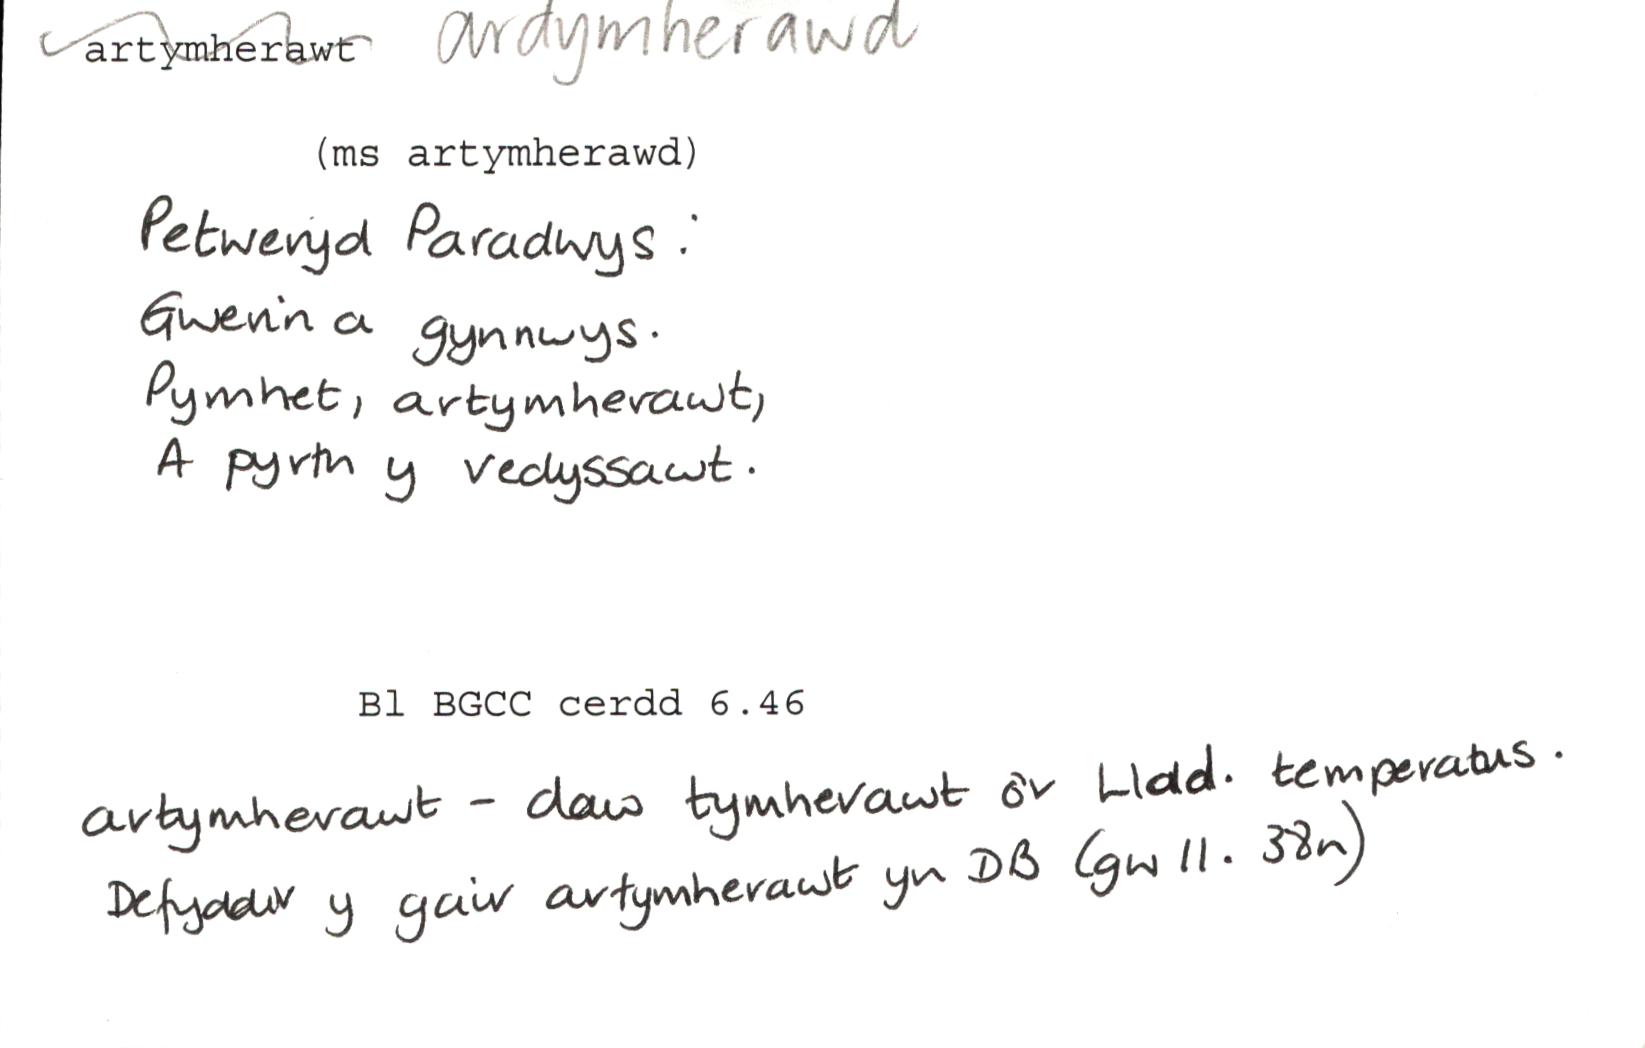 artymherawt ardymherawd
(ms artymherawd)
Petweryd Paradwys:
Gwerin a gynnwys.
Pymhet, artymherawt,
A pyrth y vedyssawt.
Bl BGCC cerdd 6.46
artymherawt - daw tymherawt o'r Llad. temperatus.
Defyddir y gair artymherawt yn DB (gw ll. 38n)